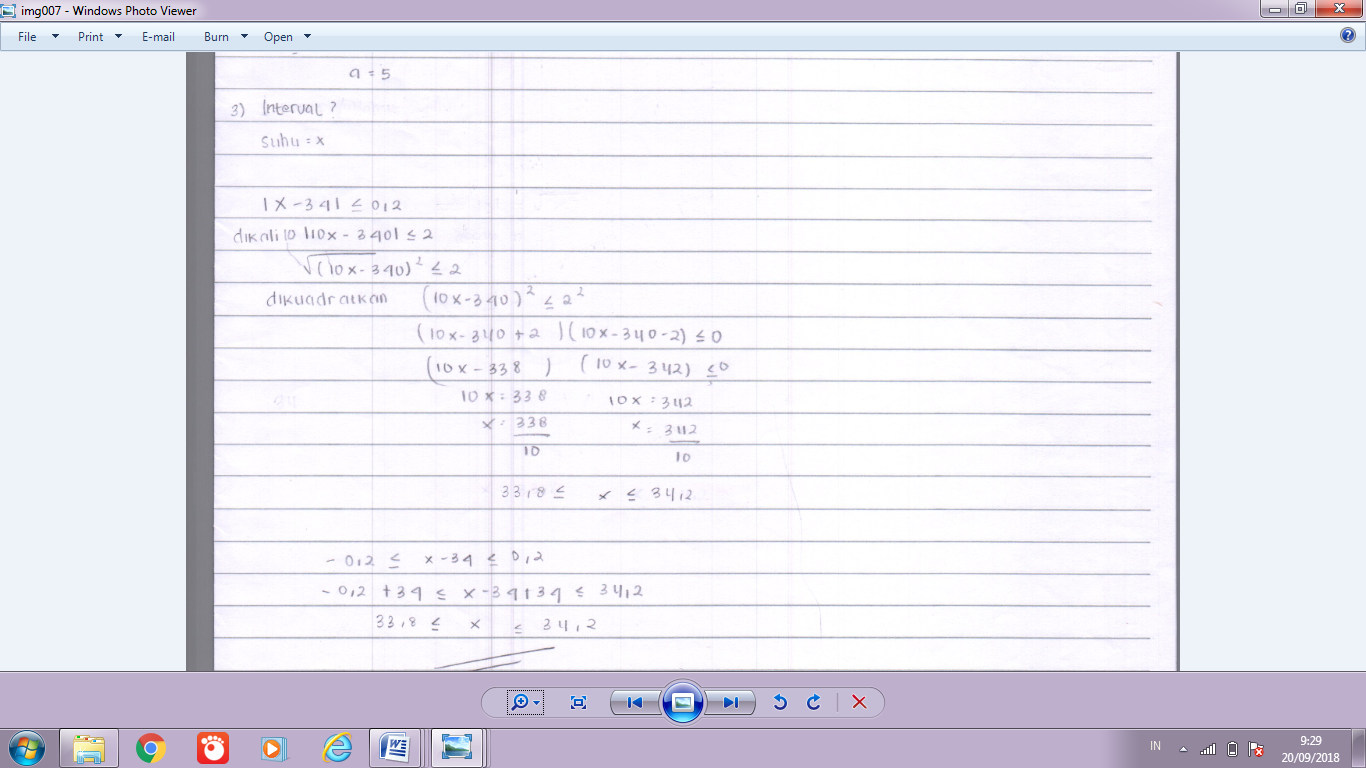 img007 - Windows Photo Viewer
File Print E-mail Burn Open
a = 5
3) Interval ?
suhu = x
|x - 34| ≤ 0,2
dikali 10 |10x - 340| ≤ 2
√(10x - 340)² ≤ 2
dikuadratkan (10x - 340)² ≤ 2²
(10x - 340 + 2 ) (10x - 340 - 2) ≤ 0
(10x - 338 ) (10x - 342) ≤ 0
10x = 338 10x = 342
x = 338/10 x = 342/10
33,8 ≤ x ≤ 34,2
- 0,2 ≤ x - 34 ≤ 0,2
- 0,2 + 34 ≤ x - 34 + 34 ≤ 34,2
33,8 ≤ x ≤ 34,2
IN 9:29
20/09/2018